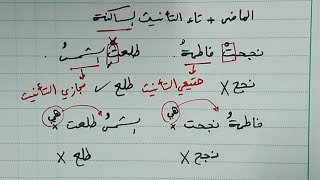 الماضى + تاء التأنيث الساكنة
نجحتْ فاطمةُ. طلعتْ الشمسُ
نجح X حقيقي التأنيث طلع ✓ مجازي التأنيث
فاطمةُ نجحت هي X الشمسُ طلعت هي X
نجح X طلع X